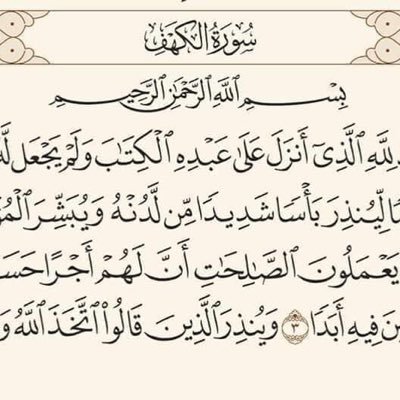 سُورَةُ الكَهْفِ
بِسْمِ اللَّهِ الرَّحْمَٰنِ الرَّحِيمِ
لِلَّهِ الَّذِي أَنزَلَ عَلَىٰ عَبْدِهِ الْكِتَابَ وَلَمْ يَجْعَل لَّهُ
لِّيُنذِرَ بَأْسًا شَدِيدًا مِّن لَّدُنْهُ وَيُبَشِّرَ
يَعْمَلُونَ الصَّالِحَاتِ أَنَّ لَهُمْ أَجْرًا
فِيهِ أَبَدًا ٣ وَيُنذِرَ الَّذِينَ قَالُوا اتَّخَذَ اللَّهُ